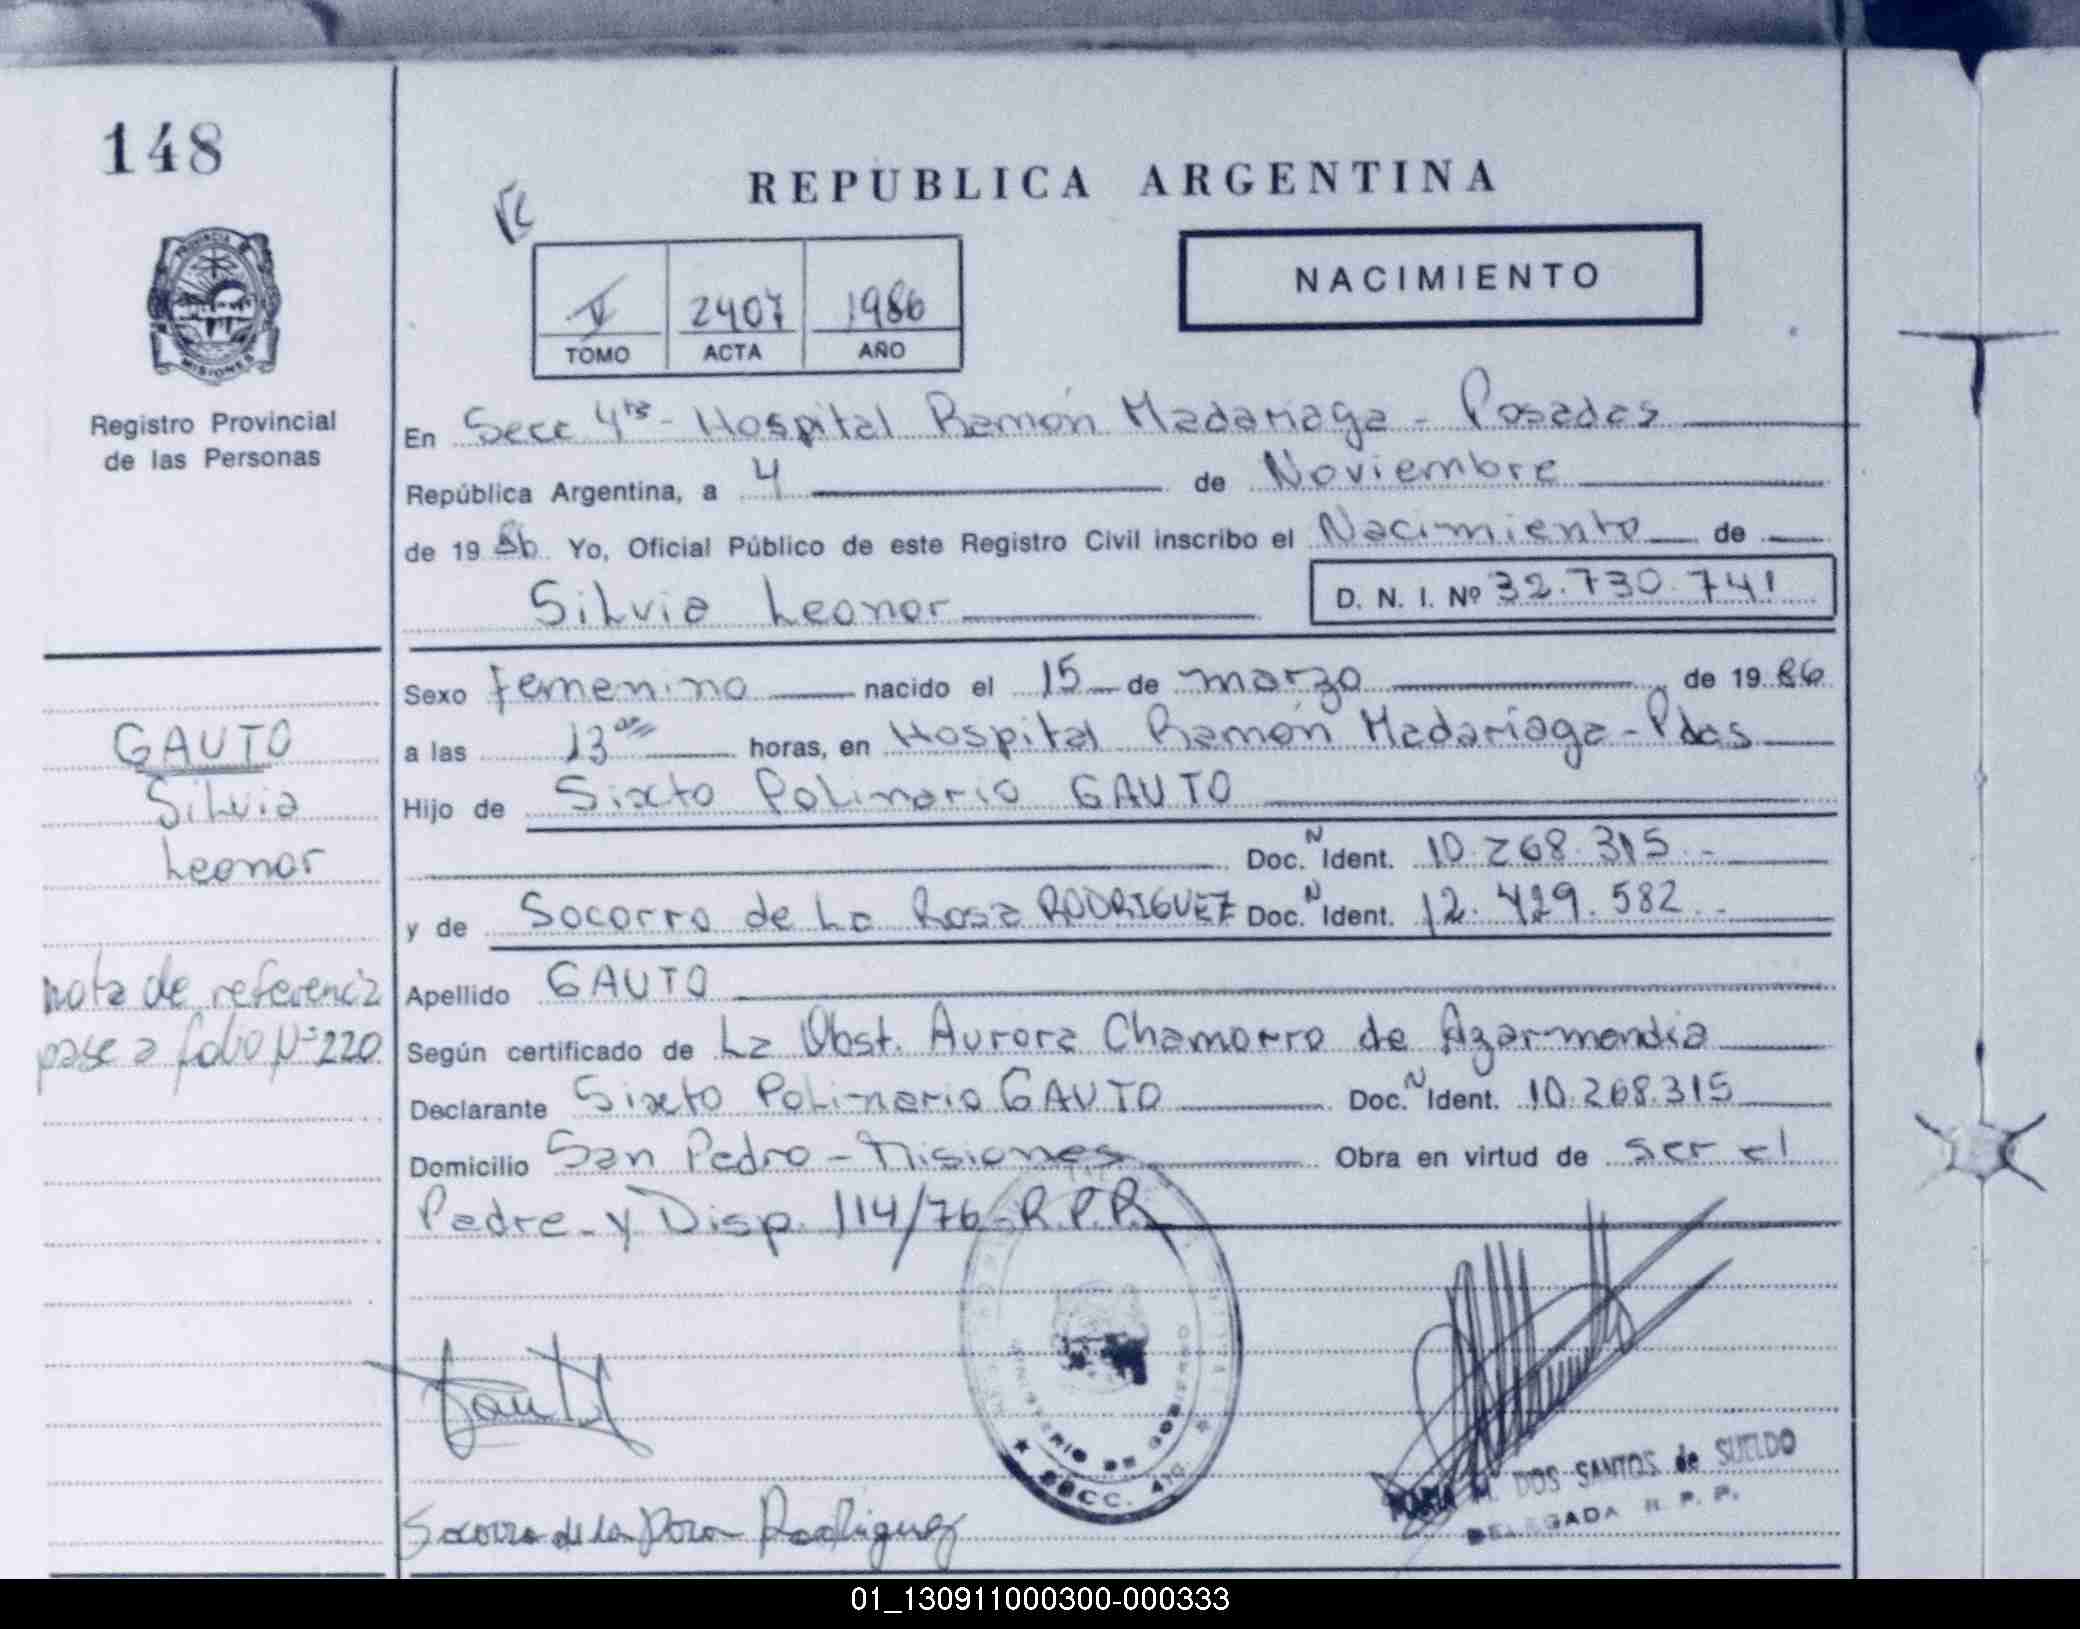 148
REPUBLICA ARGENTINA
PROVINCIA DE
MISIONES
Registro Provincial
de las Personas
V 2407 1986
TOMO ACTA AÑO
NACIMIENTO
En Secc 4ta - Hospital Ramón Madariaga - Posadas
República Argentina, a 4 de Noviembre
de 19 86 Yo, Oficial Público de este Registro Civil inscribo el Nacimiento de
Silvia Leonor D. N. I. Nº 32.730.741
Sexo femenino nacido el 15 de marzo de 19 86
a las 13 horas, en Hospital Ramón Madariaga - Pdas
Hijo de Sixto Polinario GAUTO
Doc. N Ident. 10.268.315.-
y de Socorro de La Rosa RODRIGUEZ Doc. N Ident. 12.429.582.-
Apellido GAUTO
Según certificado de La Obst. Aurora Chamorro de Azarmendia
Declarante Sixto Polinario GAUTO Doc. N Ident. 10.268.315
Domicilio San Pedro - Misiones Obra en virtud de ser el
Padre - y Disp. 114/76 - R.P.P.
GAUTO
Silvia
Leonor
nota de referencia
pase a folio Nº 220
MINISTERIO DE GOBIERNO
SECC. 4TA
Socorro de la Rosa Rodriguez
MARIA M. DOS SANTOS de SUELDO
DELEGADA R. P. P.
01_130911000300-000333